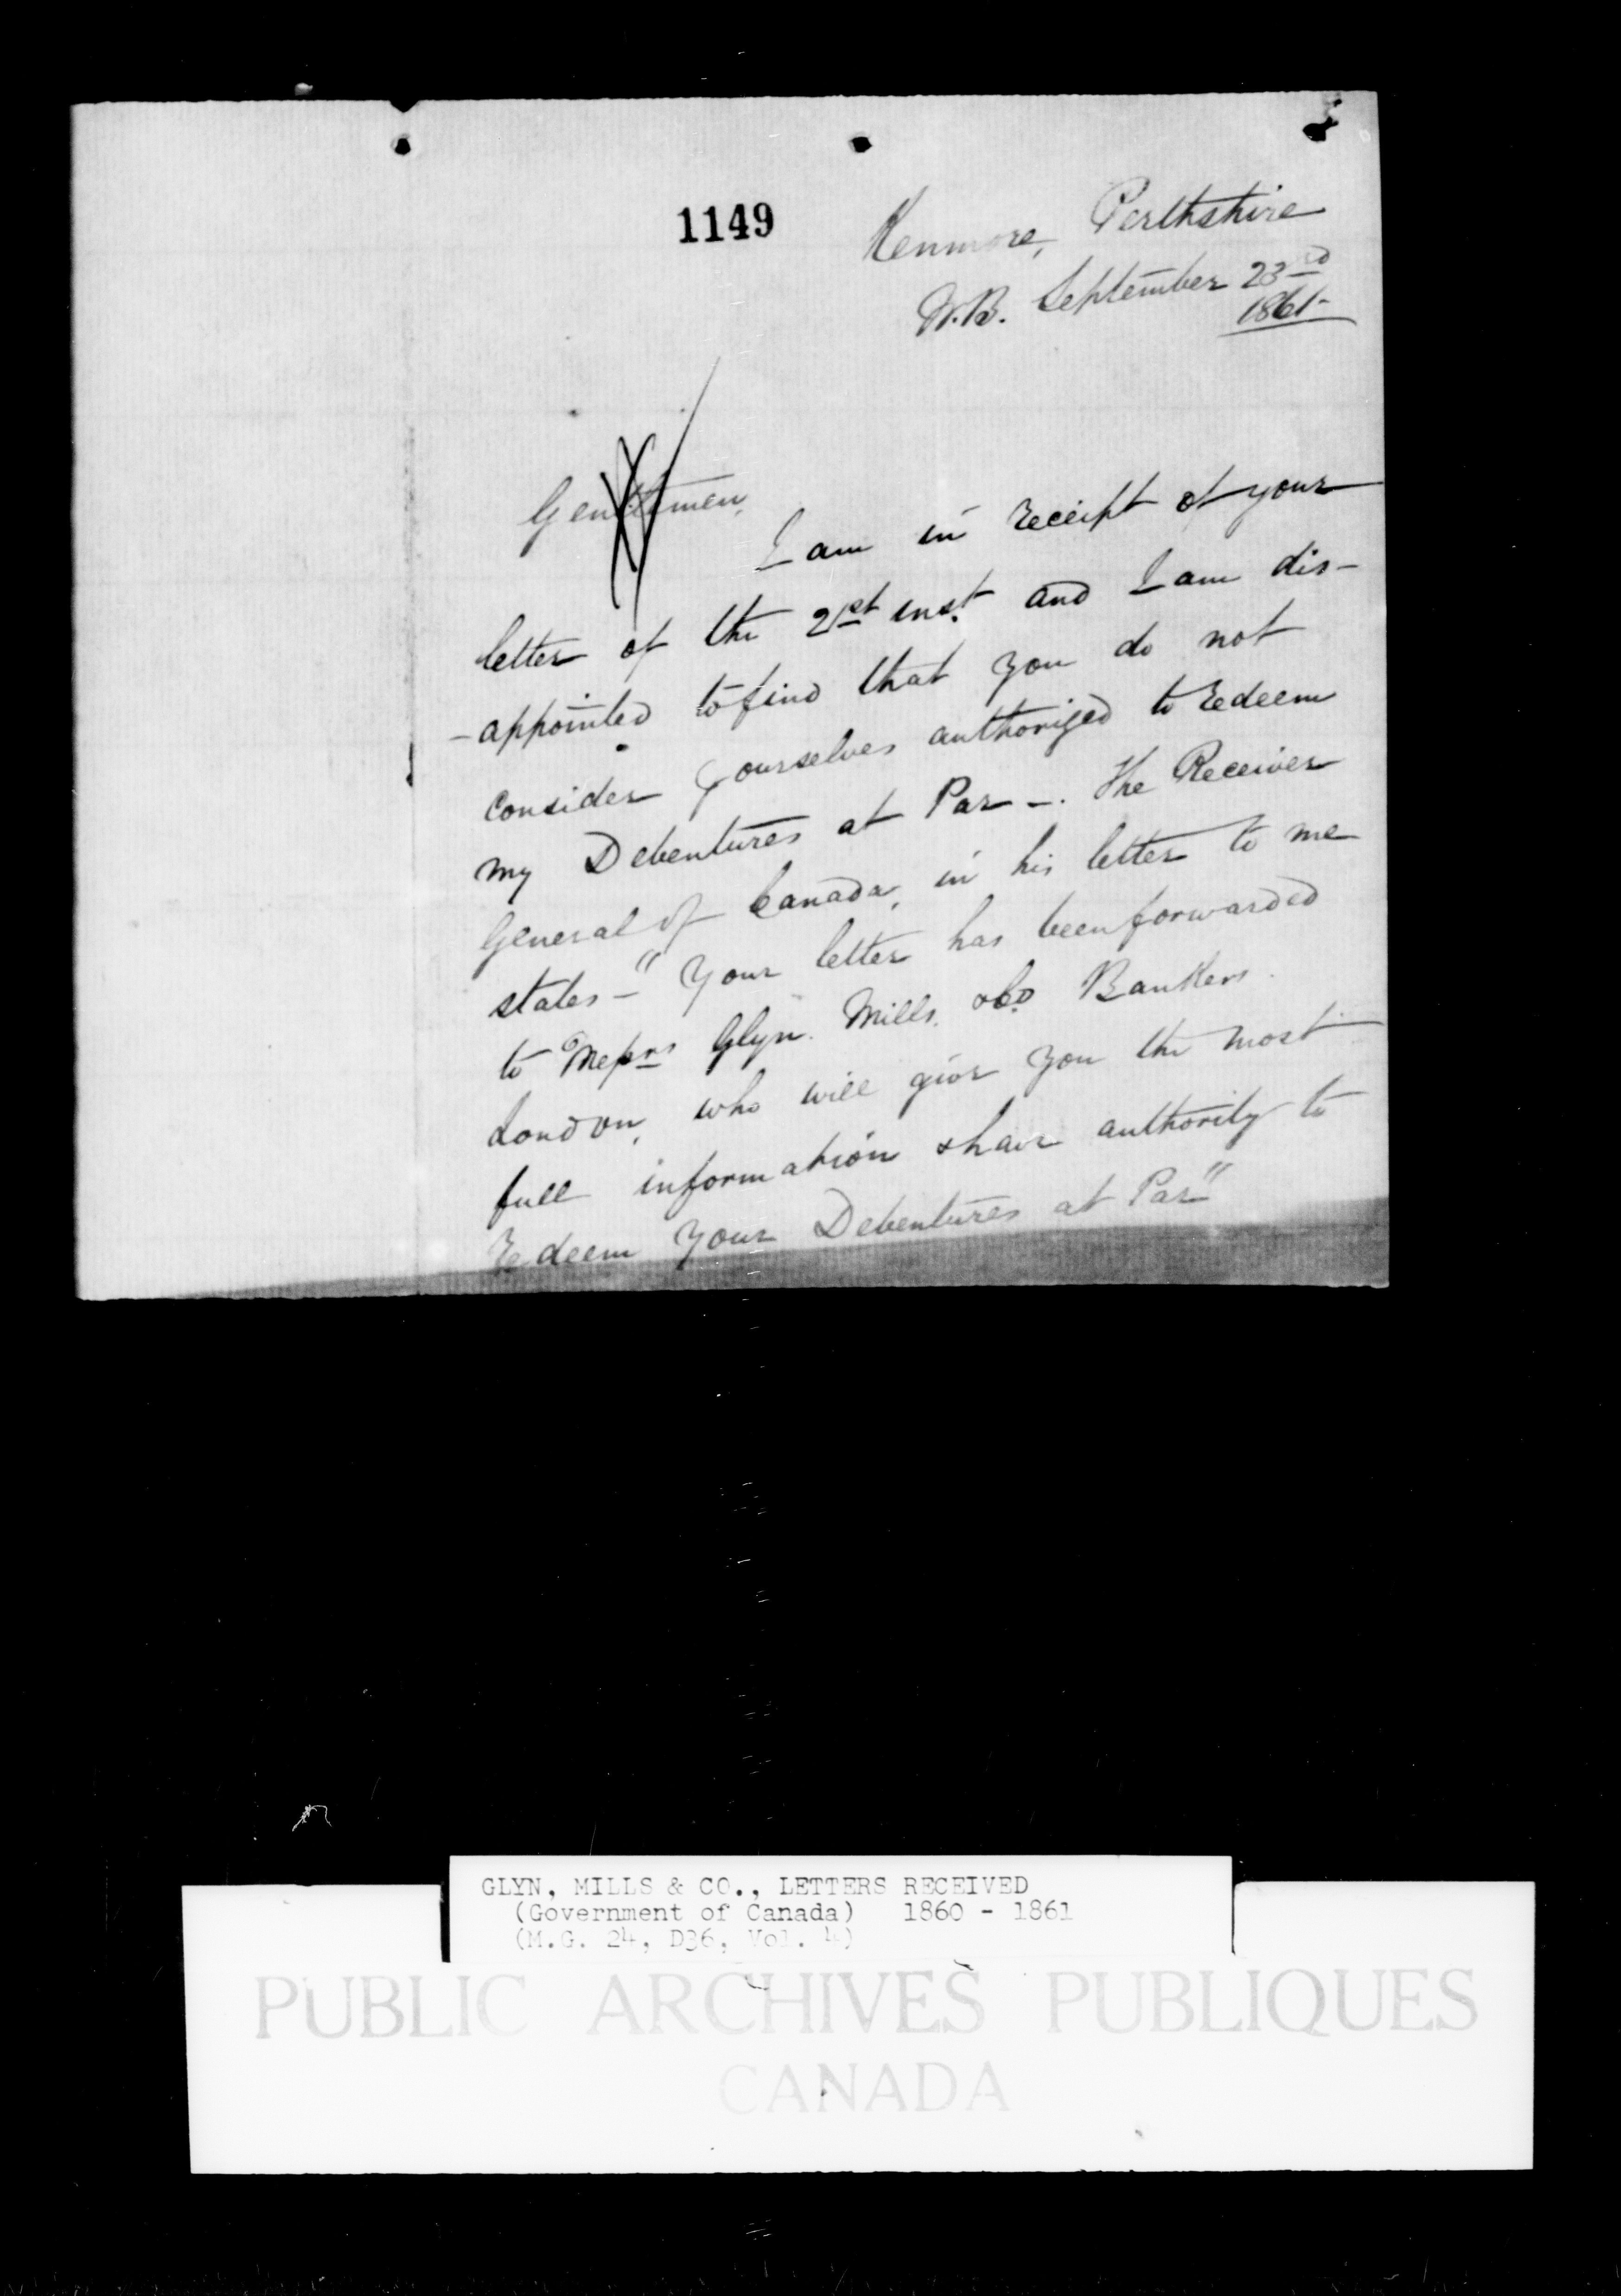 1149
Kenmore, Perthshire
N.B. September 23rd
1861-
Gentlemen,
I am in receipt of your
letter of the 21st inst. and I am dis-
-appointed to find that you do not
consider yourselves authorized to redeem
my Debentures at Par -. The Receiver
General of Canada, in his letter to me
states - "Your letter has been forwarded
to Messrs Glyn. Mills. & Co Bankers.
London, who will give you the most
full information & have authority to
redeem your Debentures at Par"
GLYN, MILLS & CO., LETTERS RECEIVED
(Government of Canada) 1860 - 1861
(M.G. 24, D36, Vol. 4)
PUBLIC ARCHIVES PUBLIQUES
CANADA